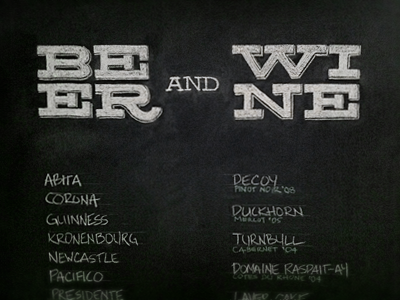 BEER AND WINE
ABITA
CORONA
GUINNESS
KRONENBOURG
NEWCASTLE
PACIFICO
PRESIDENTE
DECOY
PINOT NOIR '08
DUCKHORN
MERLOT '05
TURNBULL
CABERNET '04
DOMAINE RASPAIT-AY
COTES DU RHONE '04